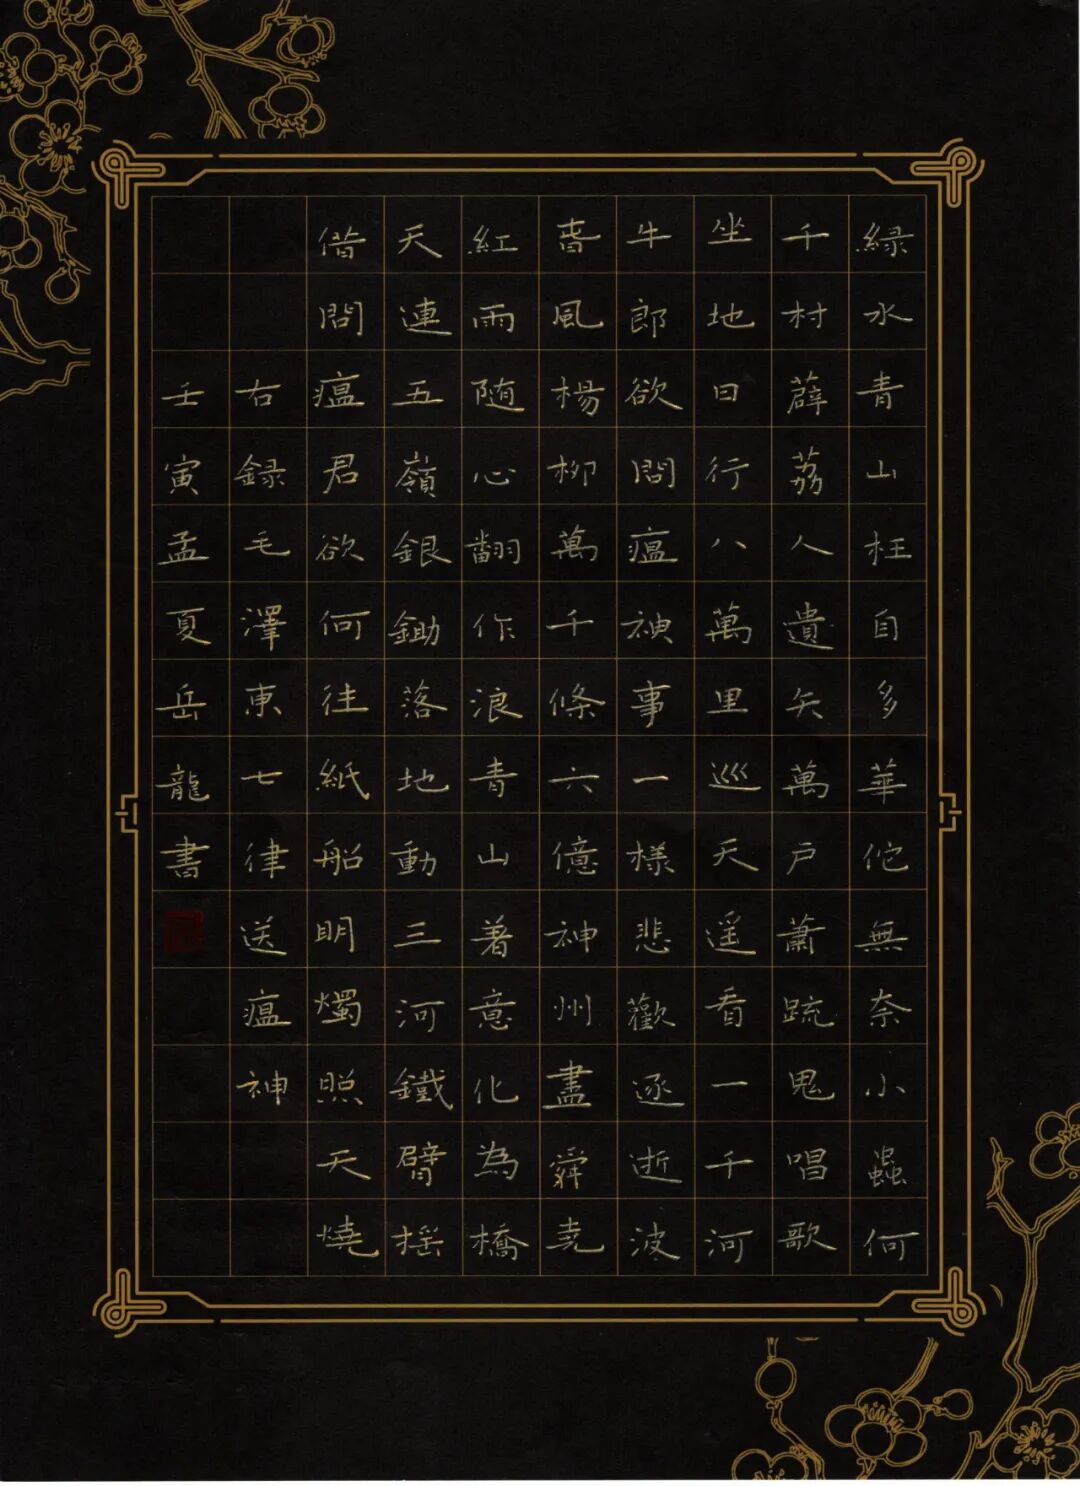 緑水青山枉自多華佗無奈小蟲何
千村薜荔人遺矢萬戶蕭疏鬼唱歌
坐地日行八萬里巡天遥看一千河
牛郎欲問瘟神事一樣悲歡逐逝波
春風楊柳萬千條六億神州盡舜堯
紅雨随心翻作浪青山着意化為橋
天連五嶺銀鋤落地動三河鐵臂摇
借問瘟君欲何往紙船明燭照天燒
右録毛澤東七律送瘟神
壬寅孟夏岳龍書